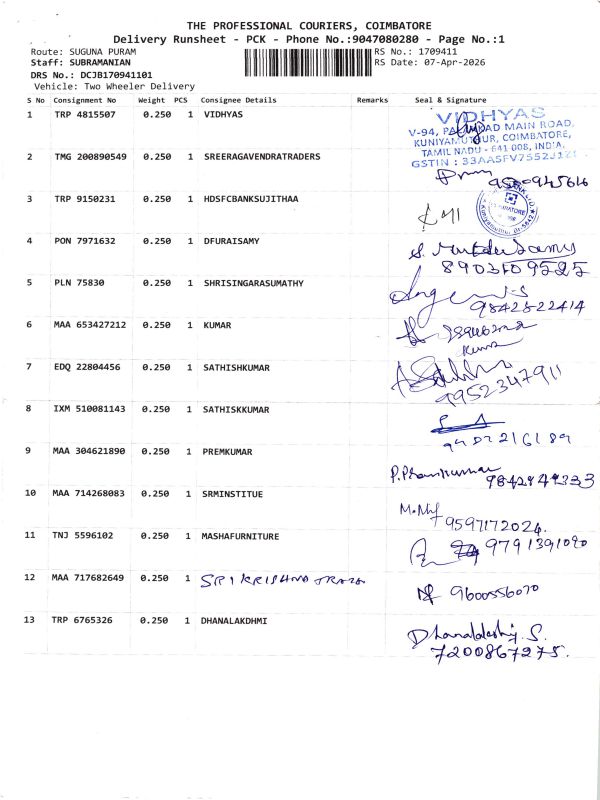 THE PROFESSIONAL COURIERS, COIMBATORE
Delivery Runsheet - PCK - Phone No.:9047080280 - Page No.:1
Route: SUGUNA PURAM RS No.: 1709411
Staff: SUBRAMANIAN RS Date: 07-Apr-2026
DRS No.: DCJB170941101
Vehicle: Two Wheeler Delivery
S No Consignment No Weight PCS Consignee Details Remarks Seal & Signature
1 TRP 4815507 0.250 1 VIDHYAS
VIDHYAS
V-94, MAIN ROAD,
KUNIYAMUTHUR, COIMBATORE,
TAMIL NADU - 641 008, INDIA.
GSTIN : 33AASFV7552J1Z1
2 TMG 200890549 0.250 1 SREERAGAVENDRATRADERS
3 TRP 9150231 0.250 1 HDSFCBANKSUJITHAA
4 PON 7971632 0.250 1 DFURAISAMY
8903109525
5 PLN 75830 0.250 1 SHRISINGARASUMATHY
9842822414
6 MAA 653427212 0.250 1 KUMAR
Kumar
7 EDQ 22804456 0.250 1 SATHISHKUMAR
9952347911
8 IXM 510081143 0.250 1 SATHISKKUMAR
9 MAA 304621890 0.250 1 PREMKUMAR
P. Premkumar
10 MAA 714268083 0.250 1 SRMINSTITUE
9597172024.
11 TNJ 5596102 0.250 1 MASHAFURNITURE
9791391090
12 MAA 717682649 0.250 1 SRI KRISHNA
9600556070
13 TRP 6765326 0.250 1 DHANALAKDHMI
7200867275.